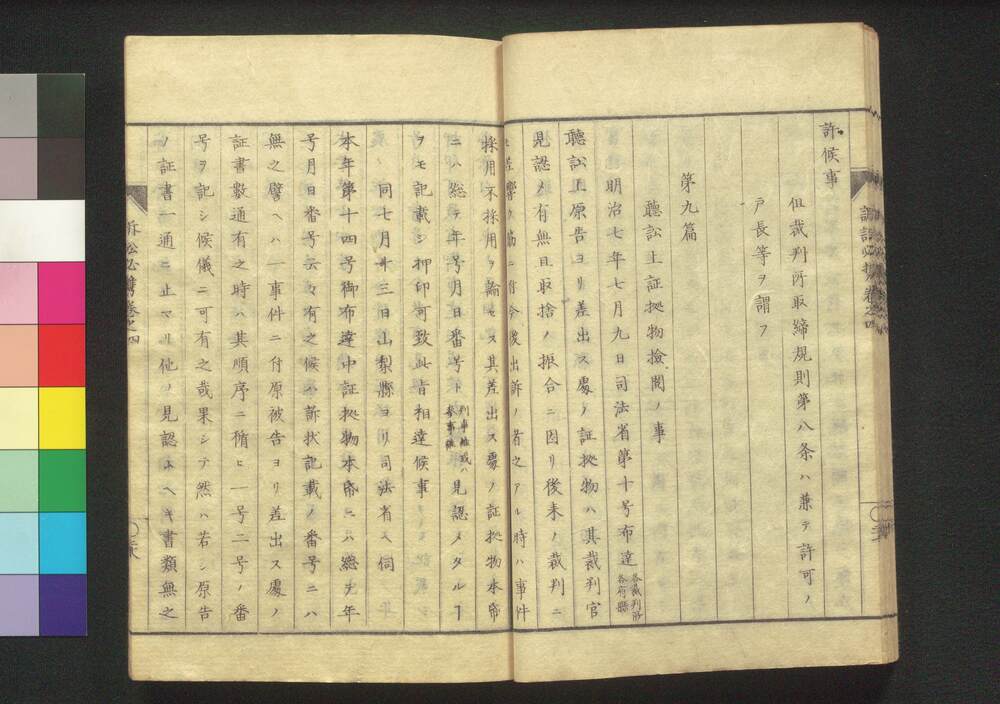 許候事
但裁判所取締規則第八条ハ兼テ許可ノ
戸長等ヲ謂フ
第九篇
聴訟上証拠物撿閲ノ事
明治七年七月九日司法省第十号布達 各裁判所 各府縣
聴訟上原告ヨリ差出ス處ノ証拠物ハ其裁判官
見認メ有無且取捨ノ振合ニ因リ後来ノ裁判ニ
差響ク筋ニ付今後出訴ノ者之アル時ハ事件
採用不採用ヲ論セス其差出ス處ノ証拠物本帋
ニハ総テ年号月日番号ト 見認メタルヿ
ヲモ記載シ押印可致此旨相達候事
同七月廿三日山梨縣ヨリ司法省ヘ伺
本年第十四号御布達中証拠物本帋ニハ総テ年
号月日番号云々有之候ハ訴状記載ノ番号ニハ
無之譬ヘハ一事件ニ付原被告ヨリ差出ス處ノ
証書数通有之時ハ其順序ニ循ヒ一号二号ノ番
号ヲ記シ候儀ニ可有之哉果シテ然ハ若シ原告
ノ証書一通ニ止マリ他ノ見認ムヘキ書類無之
訴訟必携巻之四